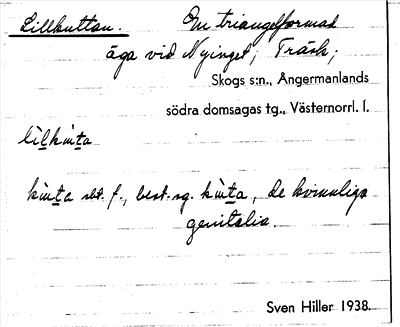 Lillkuttan. En triangelformad
äga vid Nyinget, Träsk,
Skogs s:n., Ångermanlands
södra domsagas tg., Västernorrl. l.
kut̲a sbt. f., best. sg. kut̲a, de kvinnliga
genitalia.
Sven Hiller 1938.